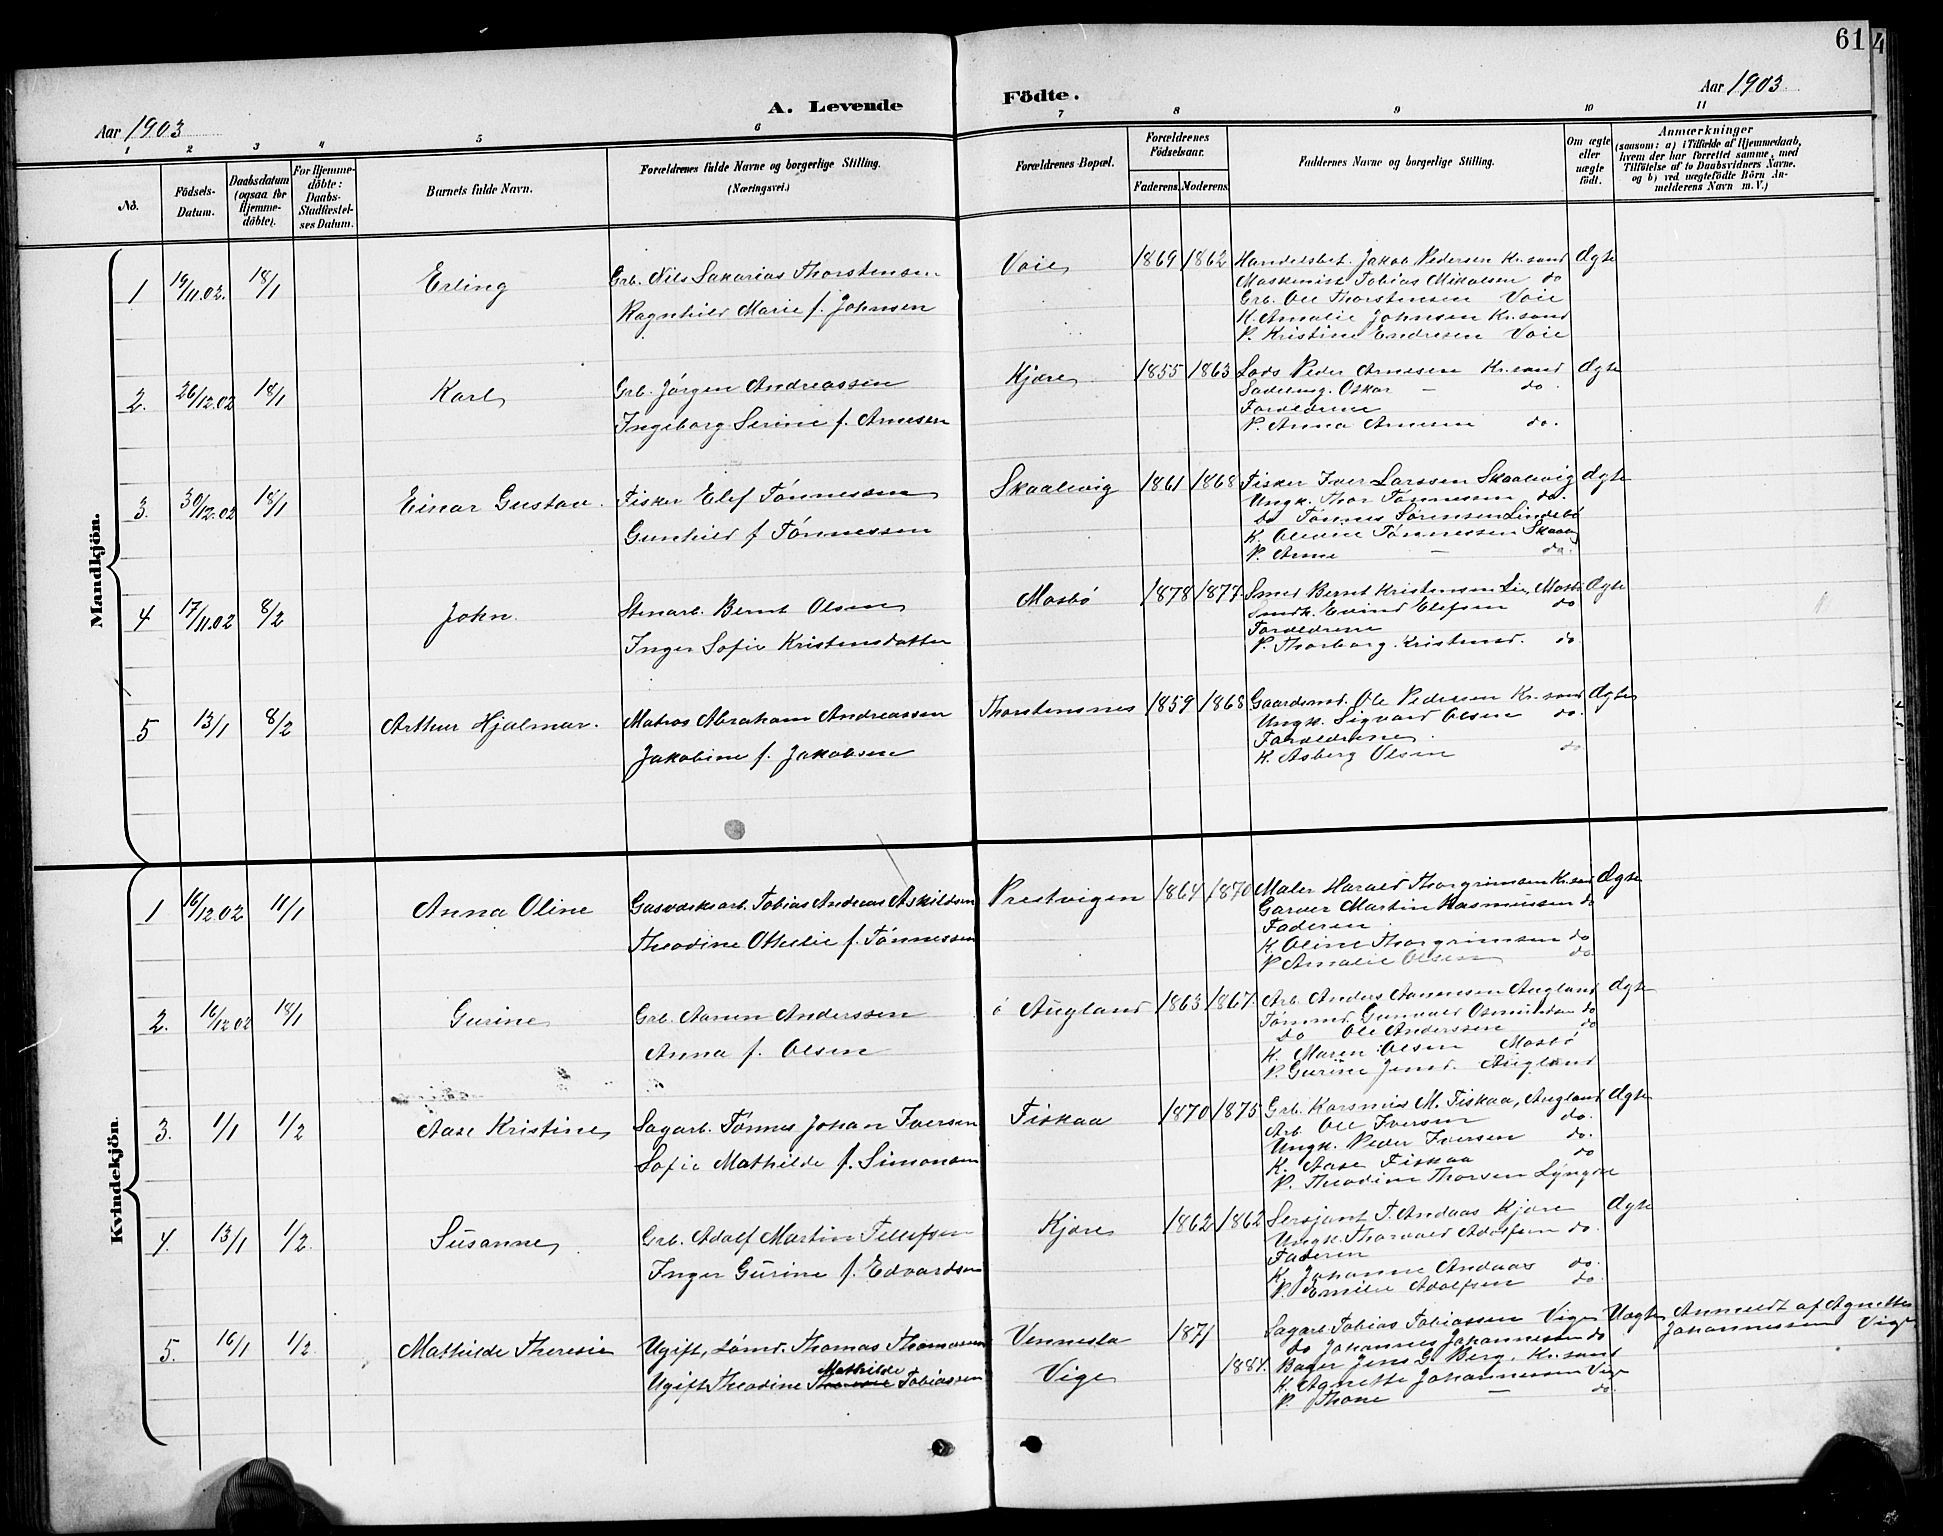 61
4
Aar 1903
A. Levende Födte.
Aar 1903
1 2 3 4 5 6 7 8 9 10 11
No.
Födsels-Datum.
Daabsdatum (ogsaa for Hjemme-döbte).
For Hjemme-döbte: Daabs-Stadfæstel-ses Datum.
Barnets fulde Navn.
Forældrenes fulde Navne og borgerlige Stilling. (Næringsvei.)
Forældrenes Bopæl.
Forældrenes Födselsaar.
Faderens. Moderens.
Faddernes Navne og borgerlige Stilling.
Om ægte eller uægte födt.
Anmærkninger
(saasom: a) i Tilfælde af Hjemmedaab, hvem der har forrettet samme, med Tilföielse af to Daabsvidners Navne. og b) ved uægtefödte Börn An-melderens Navn m. V.)
Mandkjön.
1 19/11.02. 18/1 Erling
Grb. Nils Sakarias Thorstensen
Ragnhild Marie f. Johnsen
Voie 1869 1862
Handelsbet. Jakob Pedersen Kr.sand Ægte
Maskinist Tobias Mikalsen do
Grb. Ole Thorstensen Voie
K. Amalie Johnsen Kr.sand
P. Kristine Endresen Voie
2. 26/12.02 18/1 Karl
Grb. Jörgen Andreassen
Ingeborg Serine f. Arnesen
Kjære 1855 1863
Lods Peder Arnesen Kr.sand Ægte
Sadelmg. Oskar — do.
Forældrene
P. Anna Arnesen do.
3. 30/12.02 18/1 Einar Gustav.
Fisker Elef Tönnessen
Gunhild f Tönnessen
Skaalevig 1861 1868
Fisker Iver Larssen Skaalevig Ægte
Ungk. Thor Tönnessen do.
do Tönnes Sörensen Lindebö
K. Olevine Tönnessen Skaalv
P. Anne — do.
4 17/11.02 8/2 John.
Stenarb. Bernt Olsen
Inger Sofie Kristensdatter
Mosbö 1878 1877
Smed Bernt Kristensen Lie, Mosb. Ægte
Smdk. Eivind Elefsen do
Forældrene
P. Thorborg Kristensd. do.
5 13/1 8/2 Arthur Hjalmar.
Matros Abraham Andreassen
Jakobine f. Jakobsen
Thorstensnes 1859 1868
Gaardmd. Ole Pedersen Kr.sand Ægte
Ungk. Sigvald Olsen do.
Forældrene.
K. Asberg Olsen do
Kvindekjön.
1 16/12.02 11/1 Anna Oline
Gasværksarb. Tobias Andreas Askildsen
Theodine Othelie f. Tönnessen
Prestvigen 1864 1870
Maler Harald Thorgrimsen Kr.sand Ægte
Garver Martin Rasmussen do
Faderen
K. Oline Thorgrimsen do
P. Amalie Olsen do
2. 16/12.02 18/1 Gurine
Grb. Aanen Anderssen
Anna f. Olsen
ö Augland 1863 1867.
Arb. Anders Aanensen Augland Ægte
Tömmd. Gunvald Osmundsen do
do Ole Anderssen do
K. Maren Olsen Mosbö
P. Gurine Jensd. Augland
3. 1/1 1/2 Aase Kristine
Sagarb. Tönnes Johan Iversen
Sofie Mathilde f. Simonsen
Fiskaa 1870 1875
Grb. Rasmus M. Fiskaa, Augland Ægte
Arb. Ole Iversen do.
Ungk. Peder Iversen do.
K. Aase Fiskaa do
P. Theodine Thorsen
4 13/1 1/2. Susanne
Grb. Adolf Martin Tellefsen
Inger Gurine f. Edvardsen
Kjære 1862 1862
Sersjant T. Andaas Kjære Ægte
Ungk. Thorvald Adolfsen do.
Faderen
K. Johanne Andaas do.
P. Emilie Adolfsen do.
5. 16/1 1/2. Mathilde Theresie
Ugift, Lömd. Thomas Thomassen
Mathilde
Ugift Theodine Tobiassen
Vennesla 1871
Vige 1884.
Sagarb. Tobias Tobiassen Vige Uægte
do Johannes Johannessen do
Bager Jens G. Berg, Kr.sand
K. Agnette Johannessen Vige
P. Thone — do.
Anmeldt af Agnette
Johannessen Vige